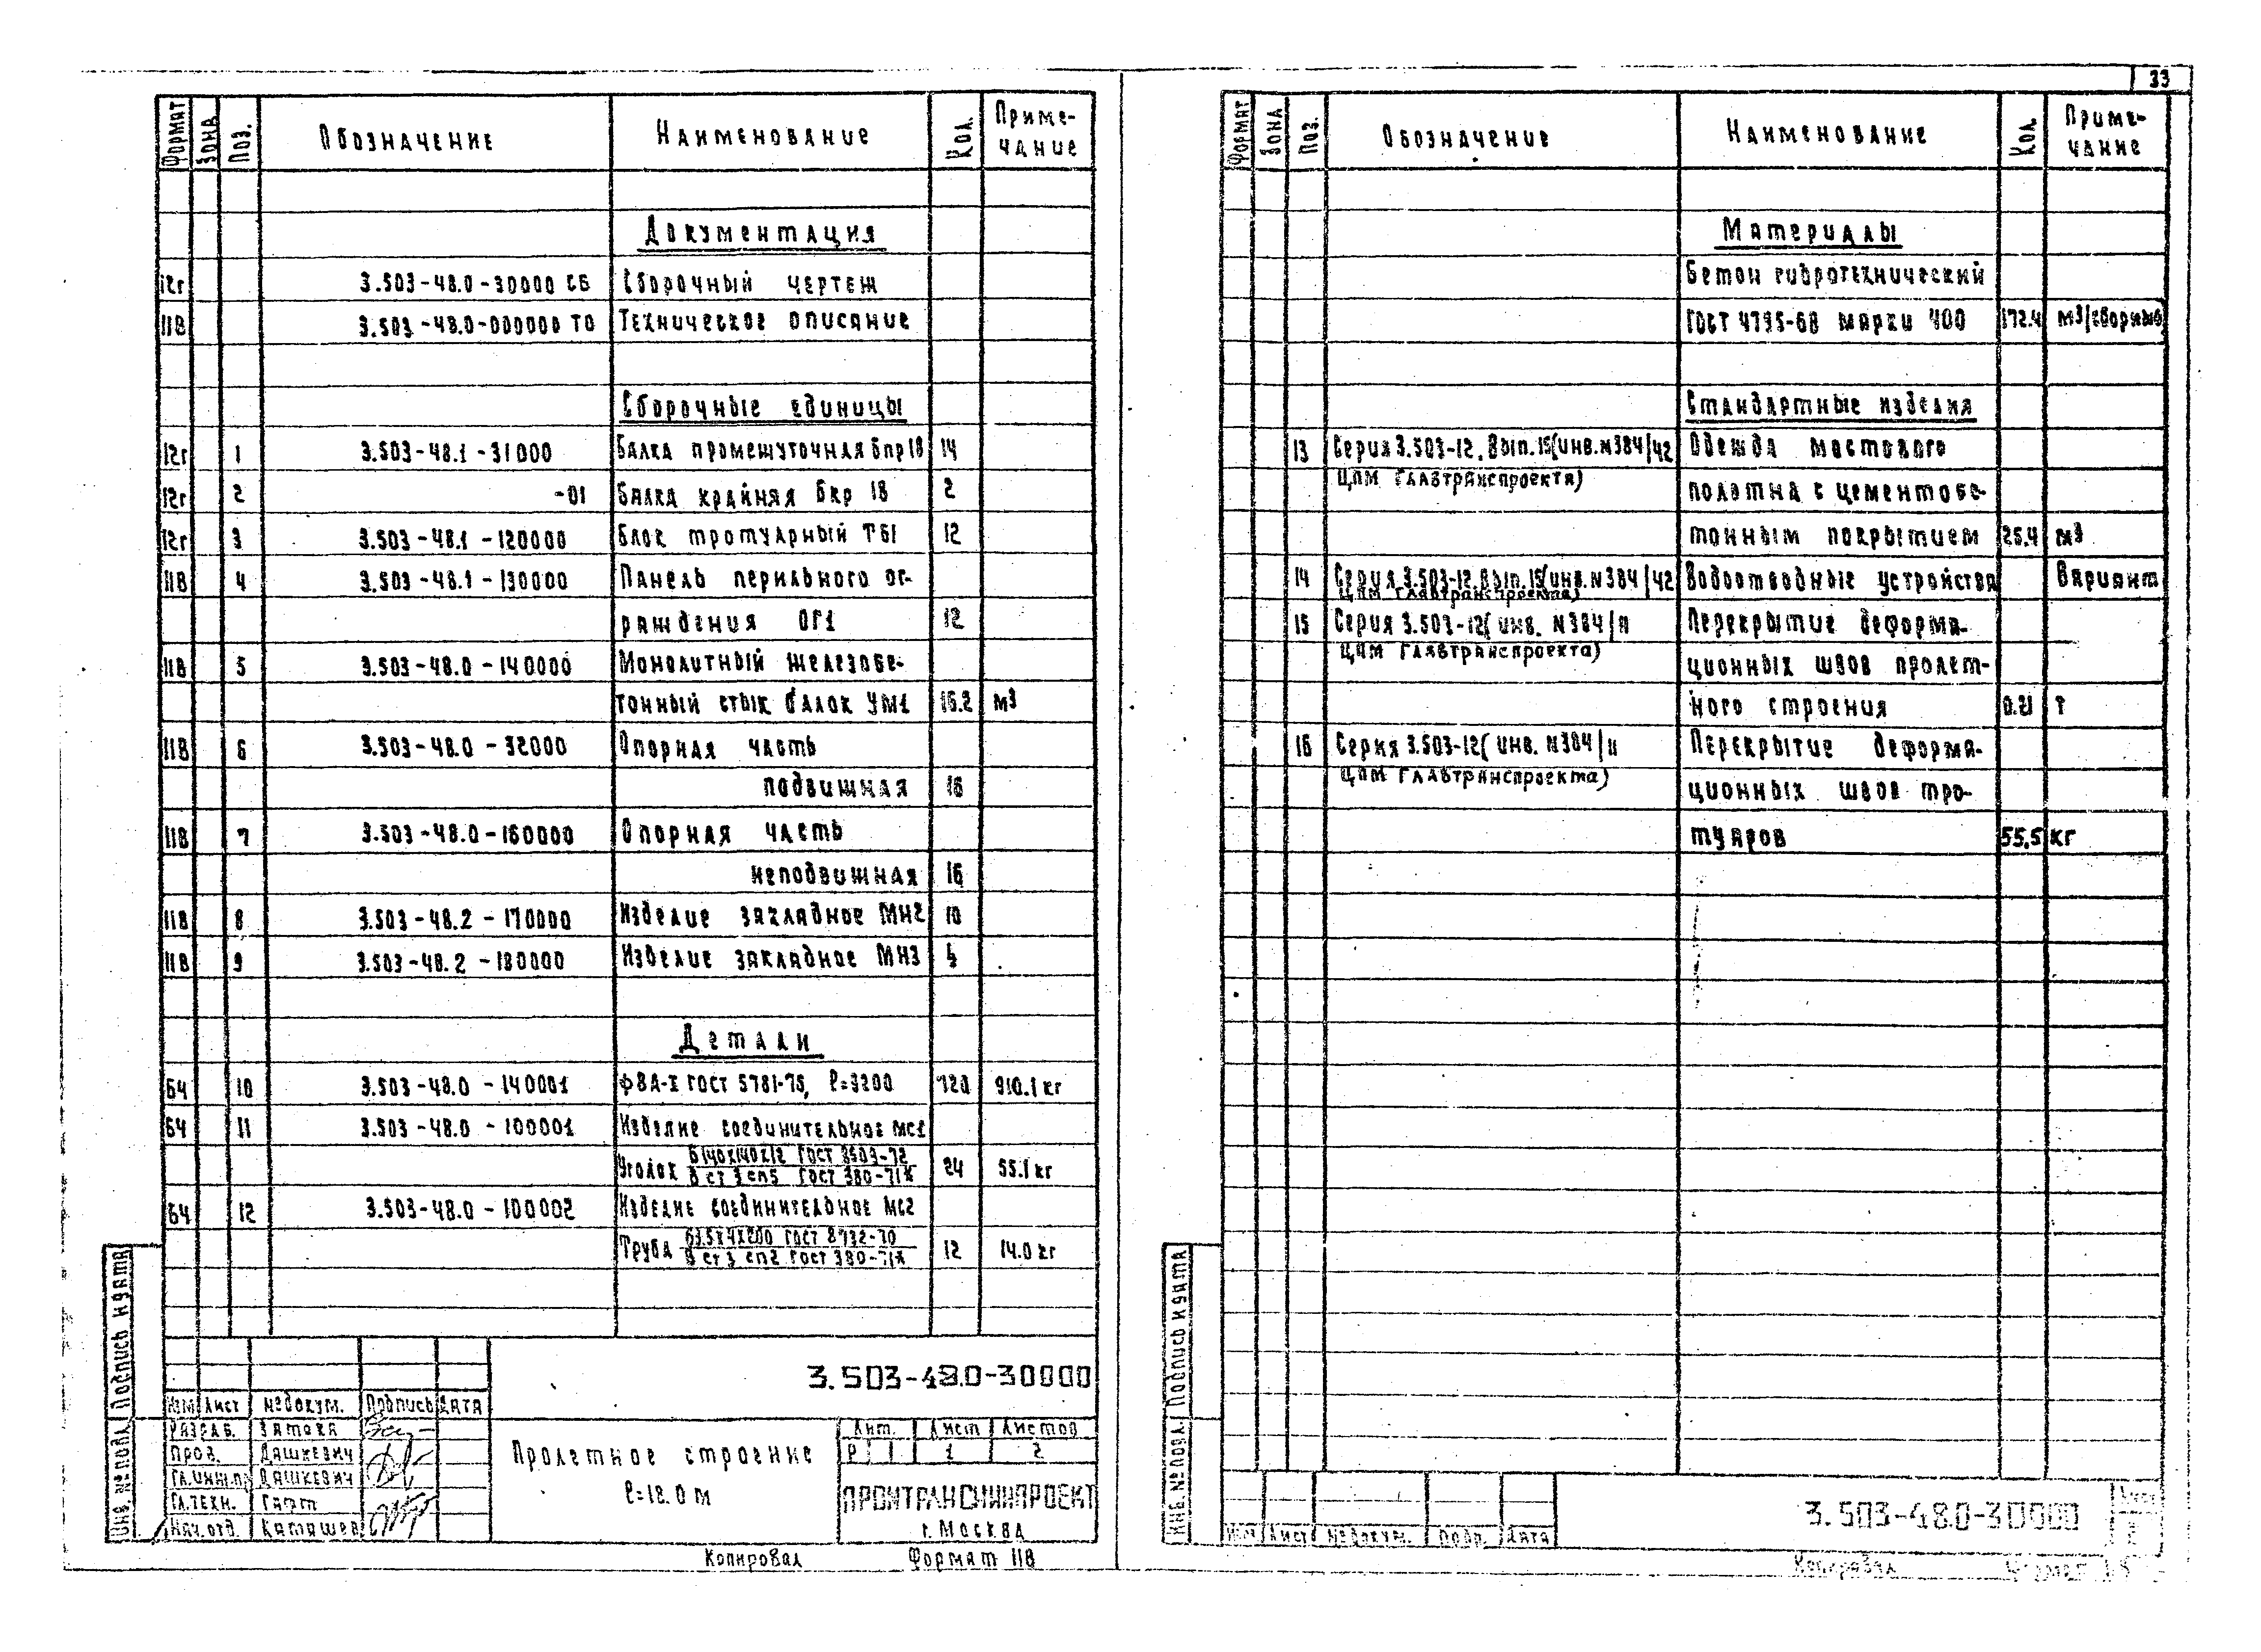 33
Формат Зона Поз. Обозначение Наименование Кол. Приме-
чание
Документация
12г 3.503-48.0-30000 СБ Сборочный чертеж
11В 3.503-48.0-000000 ТО Техническое описание
Сборочные единицы
12г 1 3.503-48.1-31000 Балка промежуточная Бпр18 14
12г 2 -01 Балка крайняя Бкр 18 2
12г 3 3.503-48.1-120000 Блок тротуарный ТБ1 12
11В 4 3.503-48.1-130000 Панель перильного ог-
раждения ОГ1 12
11В 5 3.503-48.0-140000 Монолитный железобе-
тонный стык балок УМ1 16.2 м3
11В 6 3.503-48.0-32000 Опорная часть
подвижная 16
11В 7 3.503-48.0-160000 Опорная часть
неподвижная 16
11В 8 3.503-48.2-170000 Изделие закладное МН2 10
11В 9 3.503-48.2-180000 Изделие закладное МН3 4
Детали
БЧ 10 3.503-48.0-140001 ф8А-I ГОСТ 5781-75, ℓ=3200 720 910.1 кг
БЧ 11 3.503-48.0-100001 Изделие соединительное МС1
Уголок Б140х140х12 ГОСТ 8509-72
В ст 3 сп5 ГОСТ 380-71* 24 55.1 кг
БЧ 12 3.503-48.0-100002 Изделие соединительное МС2
Труба 63.5х4х200 ГОСТ 8732-70
В ст 3 сп2 ГОСТ 380-71* 12 14.0 кг
3.503-48.0-30000
Изм Лист № докум. Подпись Дата
Разраб. Затока
Пров. Дашкевич
Гл.инж.пр Дашкевич
Гл.техн. Гапт
Нач.отд.
Пролетное строение
ℓ=18.0 м
Лит. Лист Листов
Р 1 2
ПРОМТРАНСНИИПРОЕКТ
г. Москва
Инв. № подл. Подпись и дата
Копировал Формат 11В
Формат Зона Поз. Обозначение Наименование Кол. Приме-
чание
Материалы
Бетон гидротехнический
ГОСТ 4795-68 марки 400 172.4 м3/сборный
Стандартные изделия
13 Серия 3.503-12, Вып.15(инв.№384/42 Одежда мостового
ЦПМ Главтранспроекта) полотна с цементобе-
тонным покрытием 25.4 м3
14 Серия 3.503-12, Вып.15(инв.№384/42 Водоотводные устройства Вариант
ЦПМ Главтранспроекта)
15 Серия 3.503-12( инв. №384/11 Перекрытие деформа-
ЦПМ Главтранспроекта) ционных швов пролет-
ного строения 0.21 т
16 Серия 3.503-12( инв. №384/11 Перекрытие деформа-
ЦПМ Главтранспроекта) ционных швов тро-
туаров 55,5 кг
Инв. № подл. Подпись и дата
Изм Лист № докум. Подп. Дата
3.503-48.0-30000
Лист
2
Копировал